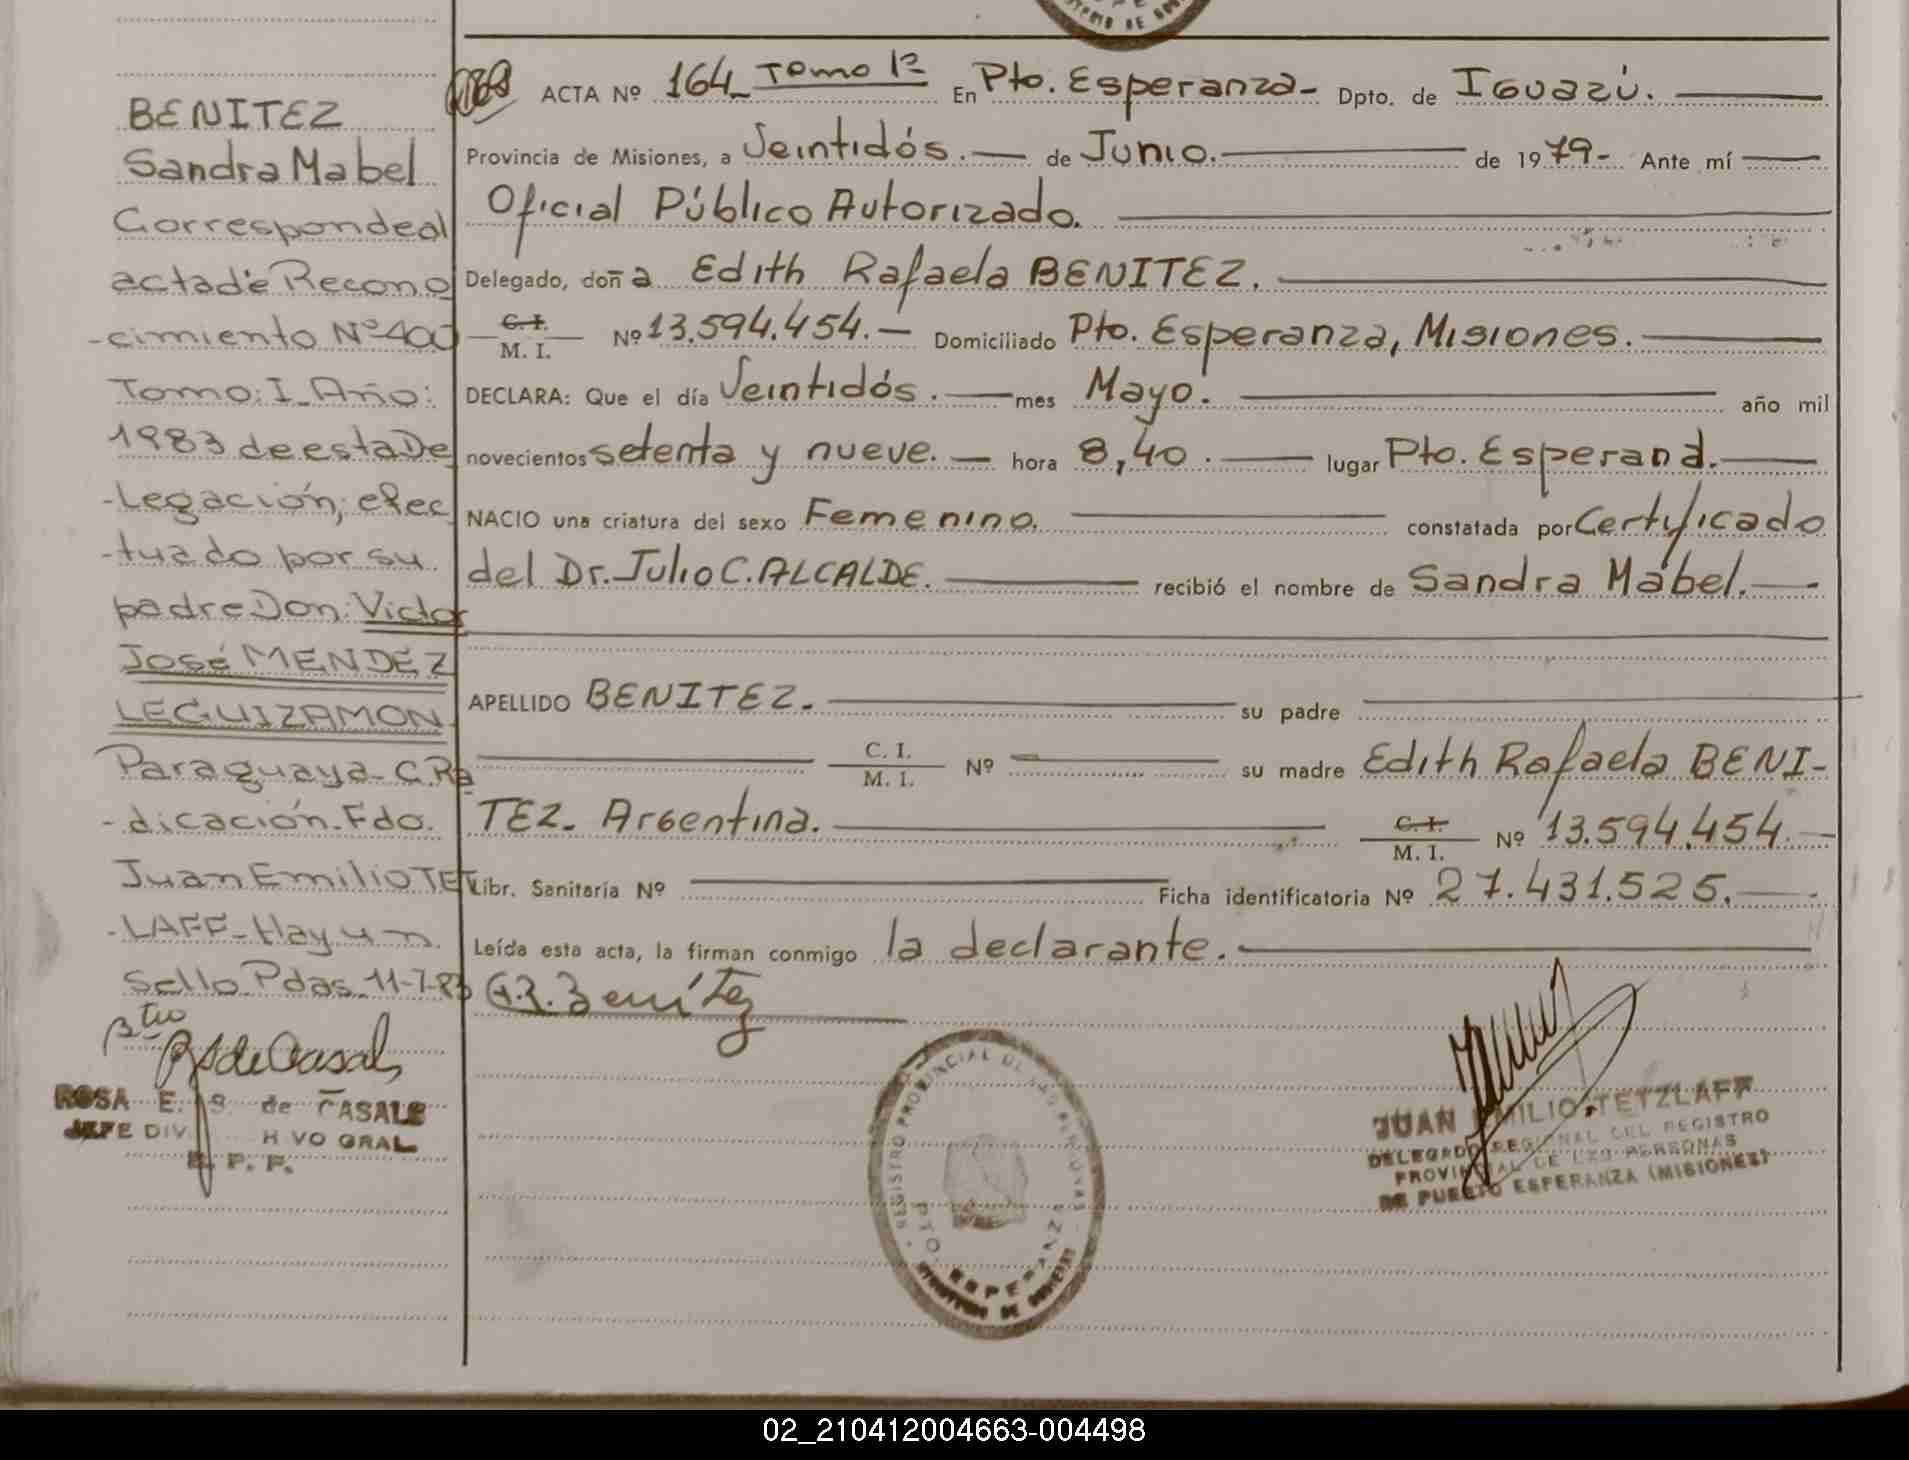 BENITEZ
Sandra Mabel
Correspondeal
acta de Recono
-cimiento Nº 400
Tomo: I_Año:
1983 de esta De
-Legación, efec
-tuado por su
padre Don: Victor
José MENDEZ
LEGUIZAMON
Paraguaya_C.Ra
-dicación_Fdo.
Juan Emilio TET
-LAFF_Hay un
Sello Pdas_11-7-83
ROSA E. S. de CASALE
JEFE DIV. H VO GRAL
R. P. P.
ACTA Nº 164_ Tomo 1º En Pto. Esperanza- Dpto. de Iguazú.
Provincia de Misiones, a Veintidós. de Junio. de 1979- Ante mí
Oficial Público Autorizado.
Delegado, doña Edith Rafaela BENITEZ.
C. I.
M. I. Nº 13.594.454.- Domiciliado Pto. Esperanza, Misiones.
DECLARA: Que el día Veintidós. mes Mayo. año mil
novecientos setenta y nueve. hora 8,40. lugar Pto. Esperand.
NACIO una criatura del sexo Femenino. constatada por Certificado
del Dr. Julio C. ALCALDE. recibió el nombre de Sandra Mabel.
APELLIDO BENITEZ. su padre
C. I.
M. I. Nº su madre Edith Rafaela BENI-
TEZ_ Argentina. C. I.
M. I. Nº 13.594.454.
Libr. Sanitaria Nº Ficha identificatoria Nº 27.431.525.
Leída esta acta, la firman conmigo la declarante.
E.R. Benítez
REGISTRO PROVINCIAL DE LAS PERSONAS
PTO. ESPERANZA
JUAN EMILIO TETZLAFF
DELEGADO REGIONAL DEL REGISTRO
PROVINCIAL DE LAS PERSONAS
DE PUERTO ESPERANZA (MISIONES)
02_210412004663-004498